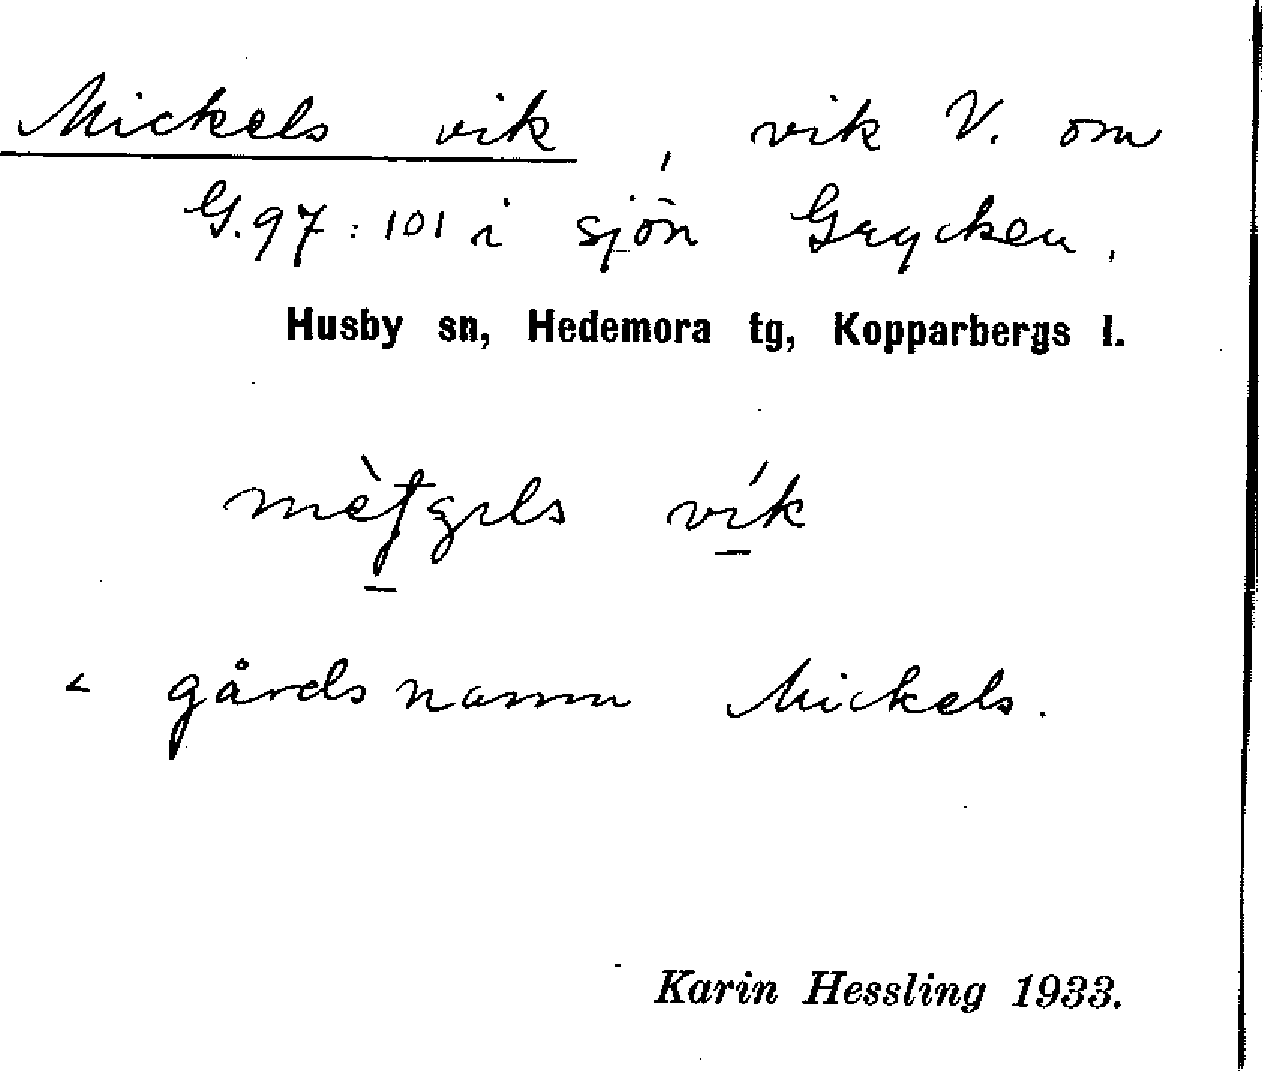 Mickels vik, vik V. om
G. 97:101 i sjön Grycken.
Husby sn, Hedemora tg, Kopparbergs l.
vík
< gårdsnamn Mickels.
Karin Hessling 1933.